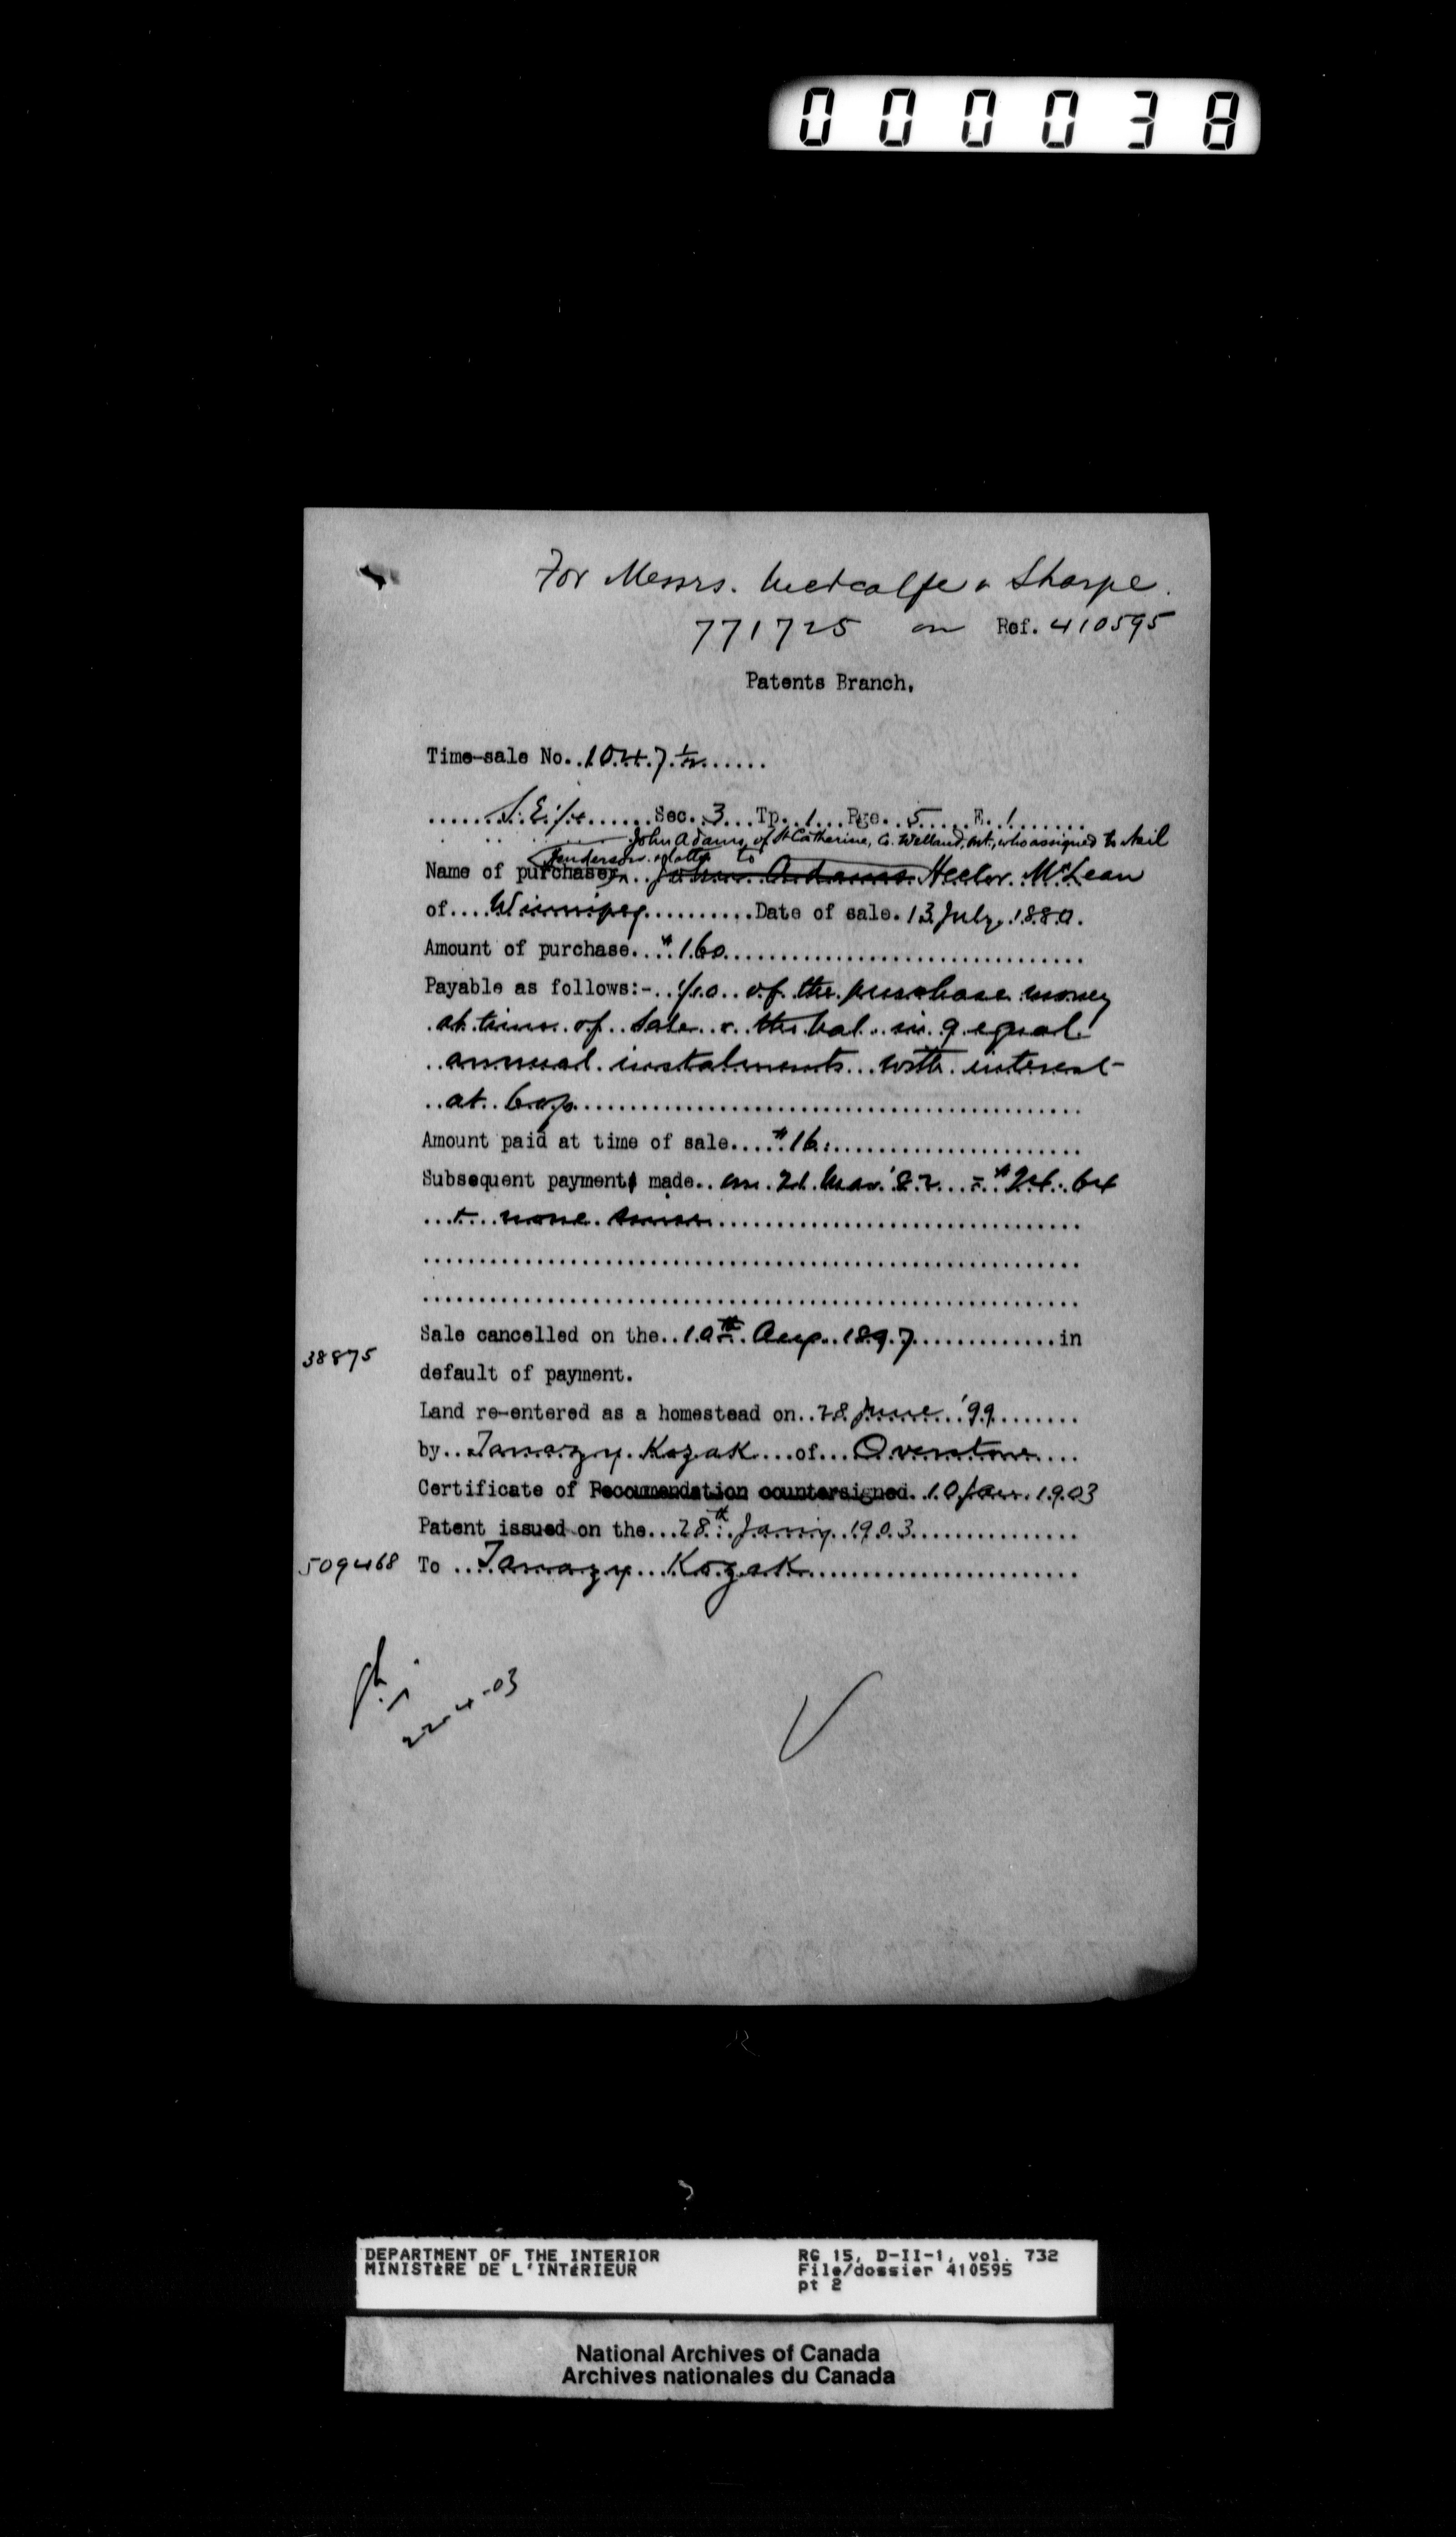 000038
For Messrs. Metcalfe & Sharpe.
771725 on Ref. 410595
Patents Branch.
Time-sale No. 1047 1/2
S.E. 1/4 Sec. 3 Tp. 1 Rge. 5 E. 1
John Adams, of St Catherine, Co. Welland, Ont., who assigned to Neil
Henderson & latter to
Name of purchaser John Adams Hector McLean
of Winnipeg Date of sale. 13 July, 1880.
Amount of purchase $160
Payable as follows:- 1/10 of the purchase money
at time of sale & the bal. in 9 equal
annual instalments with interest
at 6 o/o
Amount paid at time of sale $16.
Subsequent payment made on 21 Mar. '82 = $24.64
& none since
Sale cancelled on the 10th Aug. 1897 in
38875
default of payment.
Land re-entered as a homestead on 28 June '99
by Tanazy Kozak of Overstone
Certificate of Recommendation countersigned. 10 Jan. 1903
Patent issued on the 28th Jany 1903
509468 To Tanazy Kozak
22-4-03
DEPARTMENT OF THE INTERIOR
MINISTÈRE DE L'INTÉRIEUR
RG 15, D-II-1, vol. 732
File/dossier 410595
pt 2
National Archives of Canada
Archives nationales du Canada